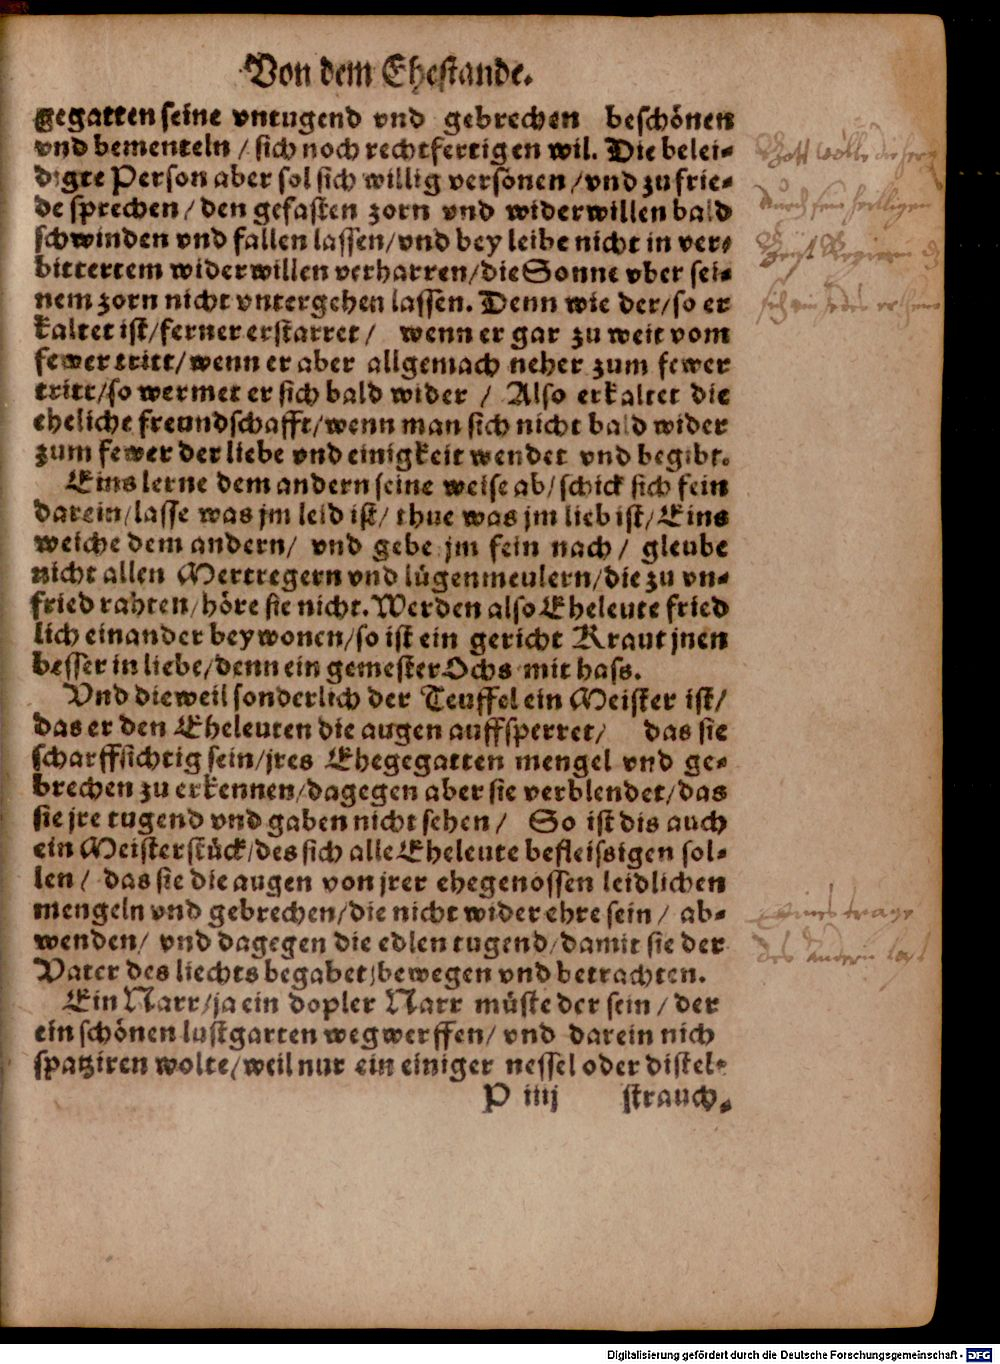 Von dem Ehestande.
gegatten seine vntugend vnd gebrechen beschönen
vnd bementeln / sich noch rechtfertigen wil. Die belei-
digte Person aber sol sich willig versonen / vnd zu frie-
de sprechen / den gefasten zorn vnd widerwillen bald
schwinden vnd fallen lassen / vnd bey leibe nicht in ver-
bittertem widerwillen verharren / die Sonne vber sei-
nem zorn nicht vntergehen lassen. Denn wie der / so er
kaltet ist / ferner erstarret / wenn er gar zu weit vom
fewer tritt / wenn er aber allgemach neher zum fewer
tritt / so wermet er sich bald wider / Also erkaltet die
eheliche freundschafft / wenn man sich nicht bald wider
zum fewer der liebe vnd einigkeit wendet vnd begibt.
Eins lerne dem andern seine weise ab / schick sich fein
darein / lasse was jm leid ist / thue was jm lieb ist / Eins
weiche dem andern / vnd gebe jm fein nach / gleube
nicht allen Mertregern vnd lügenmeulern / die zu vn-
fried rahten / höre sie nicht. Werden also Eheleute fried
lich einander beywonen / so ist ein gericht Kraut jnen
besser in liebe / denn ein gemester Ochs mit hass.
Vnd dieweil sonderlich der Teuffel ein Meister ist /
das er den Eheleuten die augen auffsperret / das sie
scharffsichtig sein / jres Ehegegatten mengel vnd ge-
brechen zu erkennen / dagegen aber sie verblendet / das
sie jre tugend vnd gaben nicht sehen / So ist dis auch
ein Meisterstück / des sich alle Eheleute befleissigen sol-
len / das sie die augen von jrer ehegenossen leidlichen
mengeln vnd gebrechen / die nicht wider ehre sein / ab-
wenden / vnd dagegen die edlen tugend / damit sie der
Vater des liechts begabet / bewegen vnd betrachten.
Ein Narr / ja ein dopler Narr müste der sein / der
ein schönen lustgarten wegwerffen / vnd darein nich
spatziren wolte / weil nur ein einiger nessel oder distel-
P iiij strauch.
Gott wolle die
durch sein heilligen
Geist Regieren
des Andern last
Digitalisierung gefördert durch die Deutsche Forschungsgemeinschaft - DFG